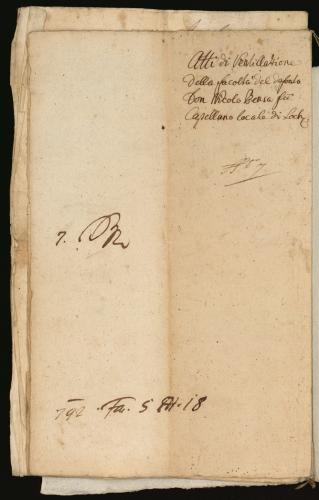 Atti di Ventillatione
Della facoltà del defonto
Don Nicolò Bensa fù
Capellano locale di
N 7
7.
792 Fas. 5 18